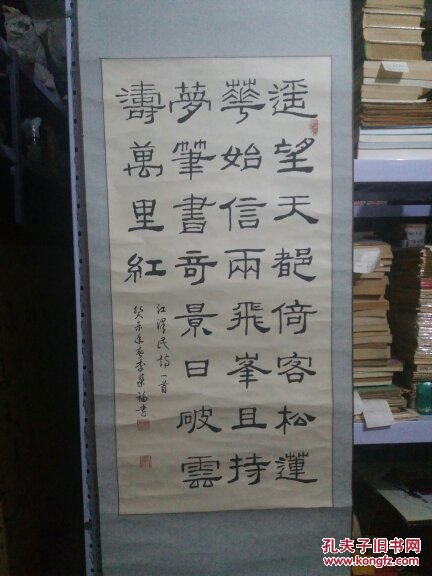 遥望天都倚客松蓮
華始信兩飛峯且持
夢筆書奇景日破雲
濤萬里紅
江澤民詩一首
癸未年春李福書
孔夫子旧书网
KONGFZ.COM